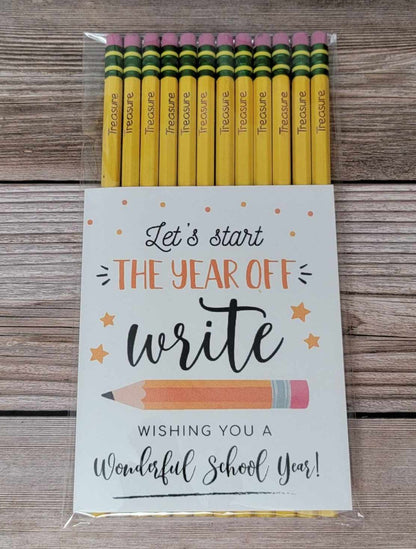 Treasure
Treasure
Treasure
Treasure
Treasure
Treasure
Treasure
Treasure
Treasure
Treasure
Treasure
Treasure
Let's start
THE YEAR OFF
write
WISHING YOU A
Wonderful School Year!